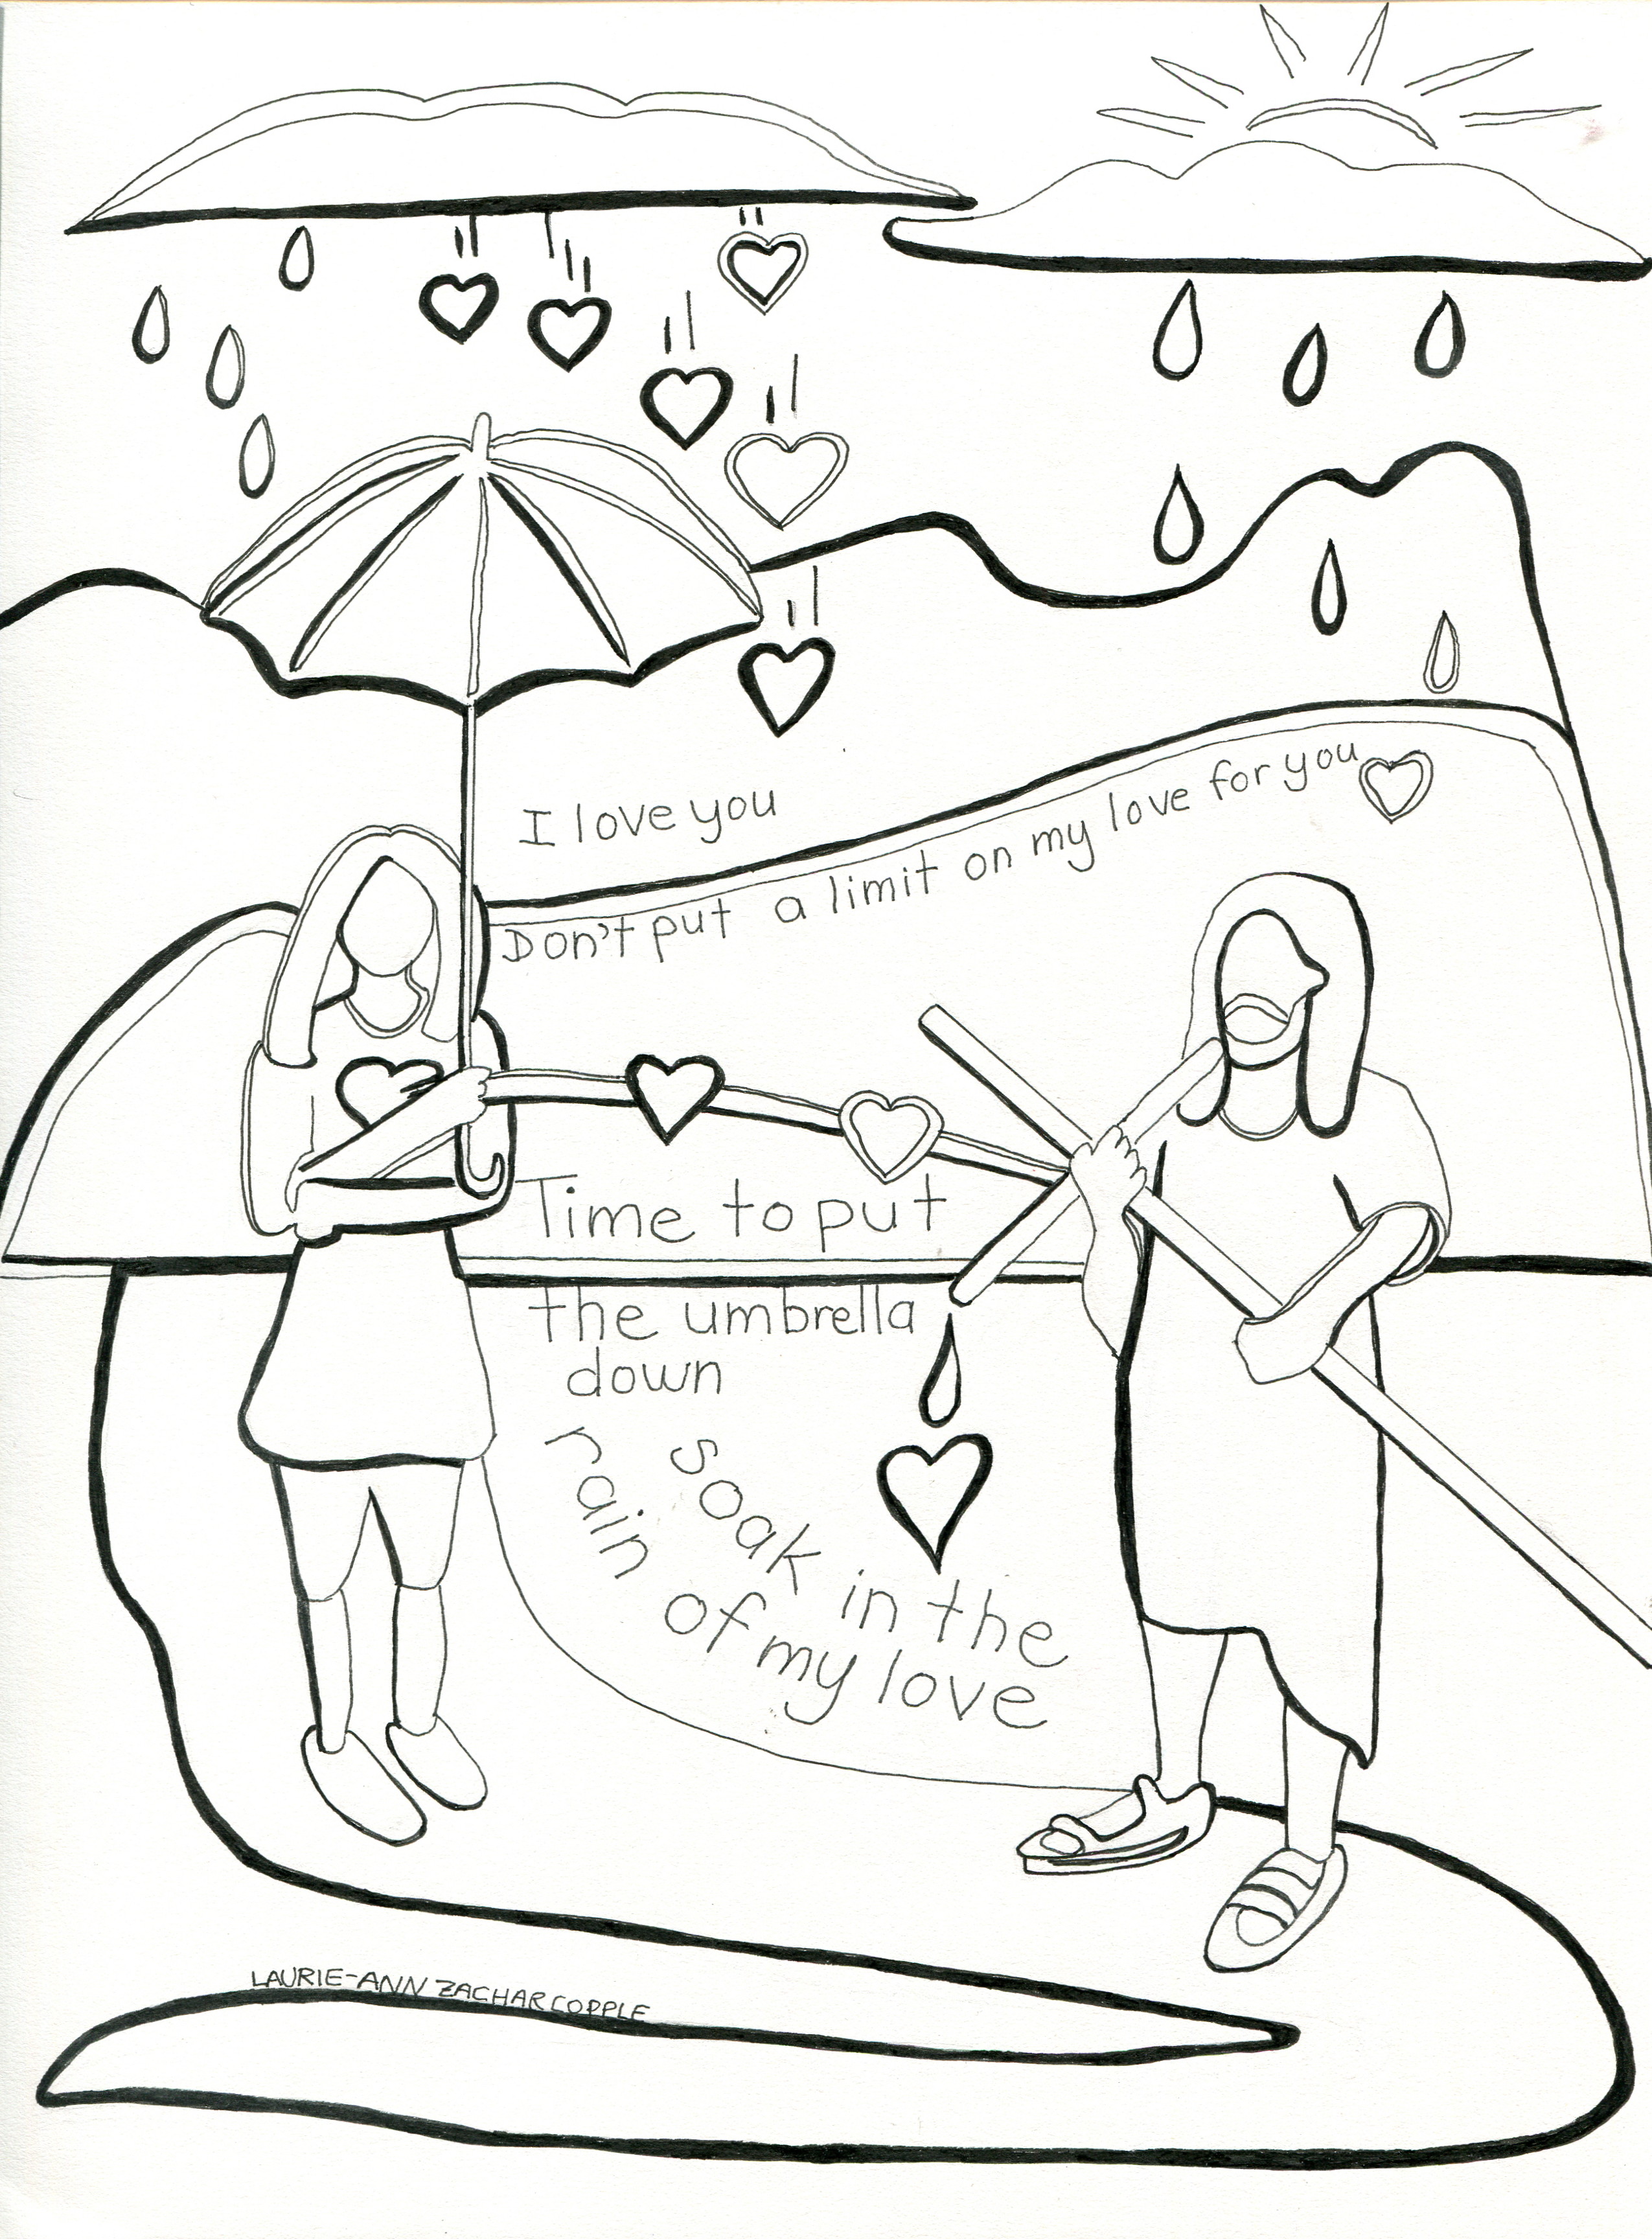 I love you
Don't put a limit on my love for you
Time to put
the umbrella
down
soak in the
rain of my love
LAURIE-ANN ZACHAR COPPLE